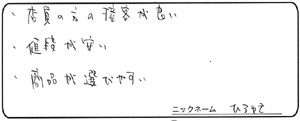 ・店員の方の接客が良い
・値段が安い
・商品が選びやすい
ニックネーム ひろゆき